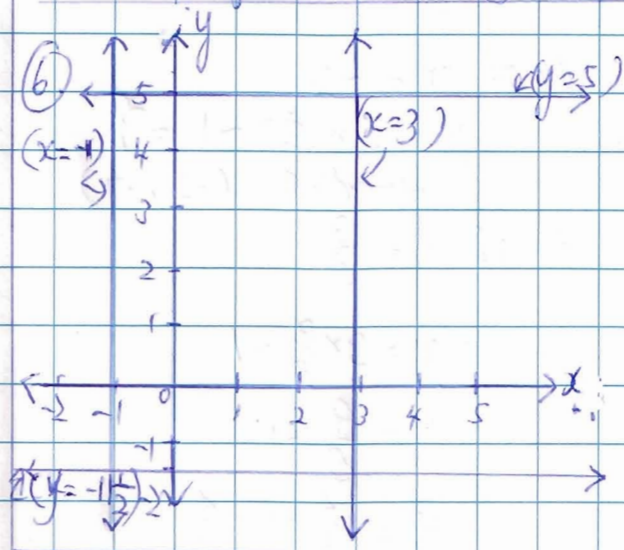 y
6
5
(y=5)
(x=3)
(x=-1)
4
3
2
1
-2 -1 0 1 2 3 4 5 x
-1
(y=-1 1/2)
-2